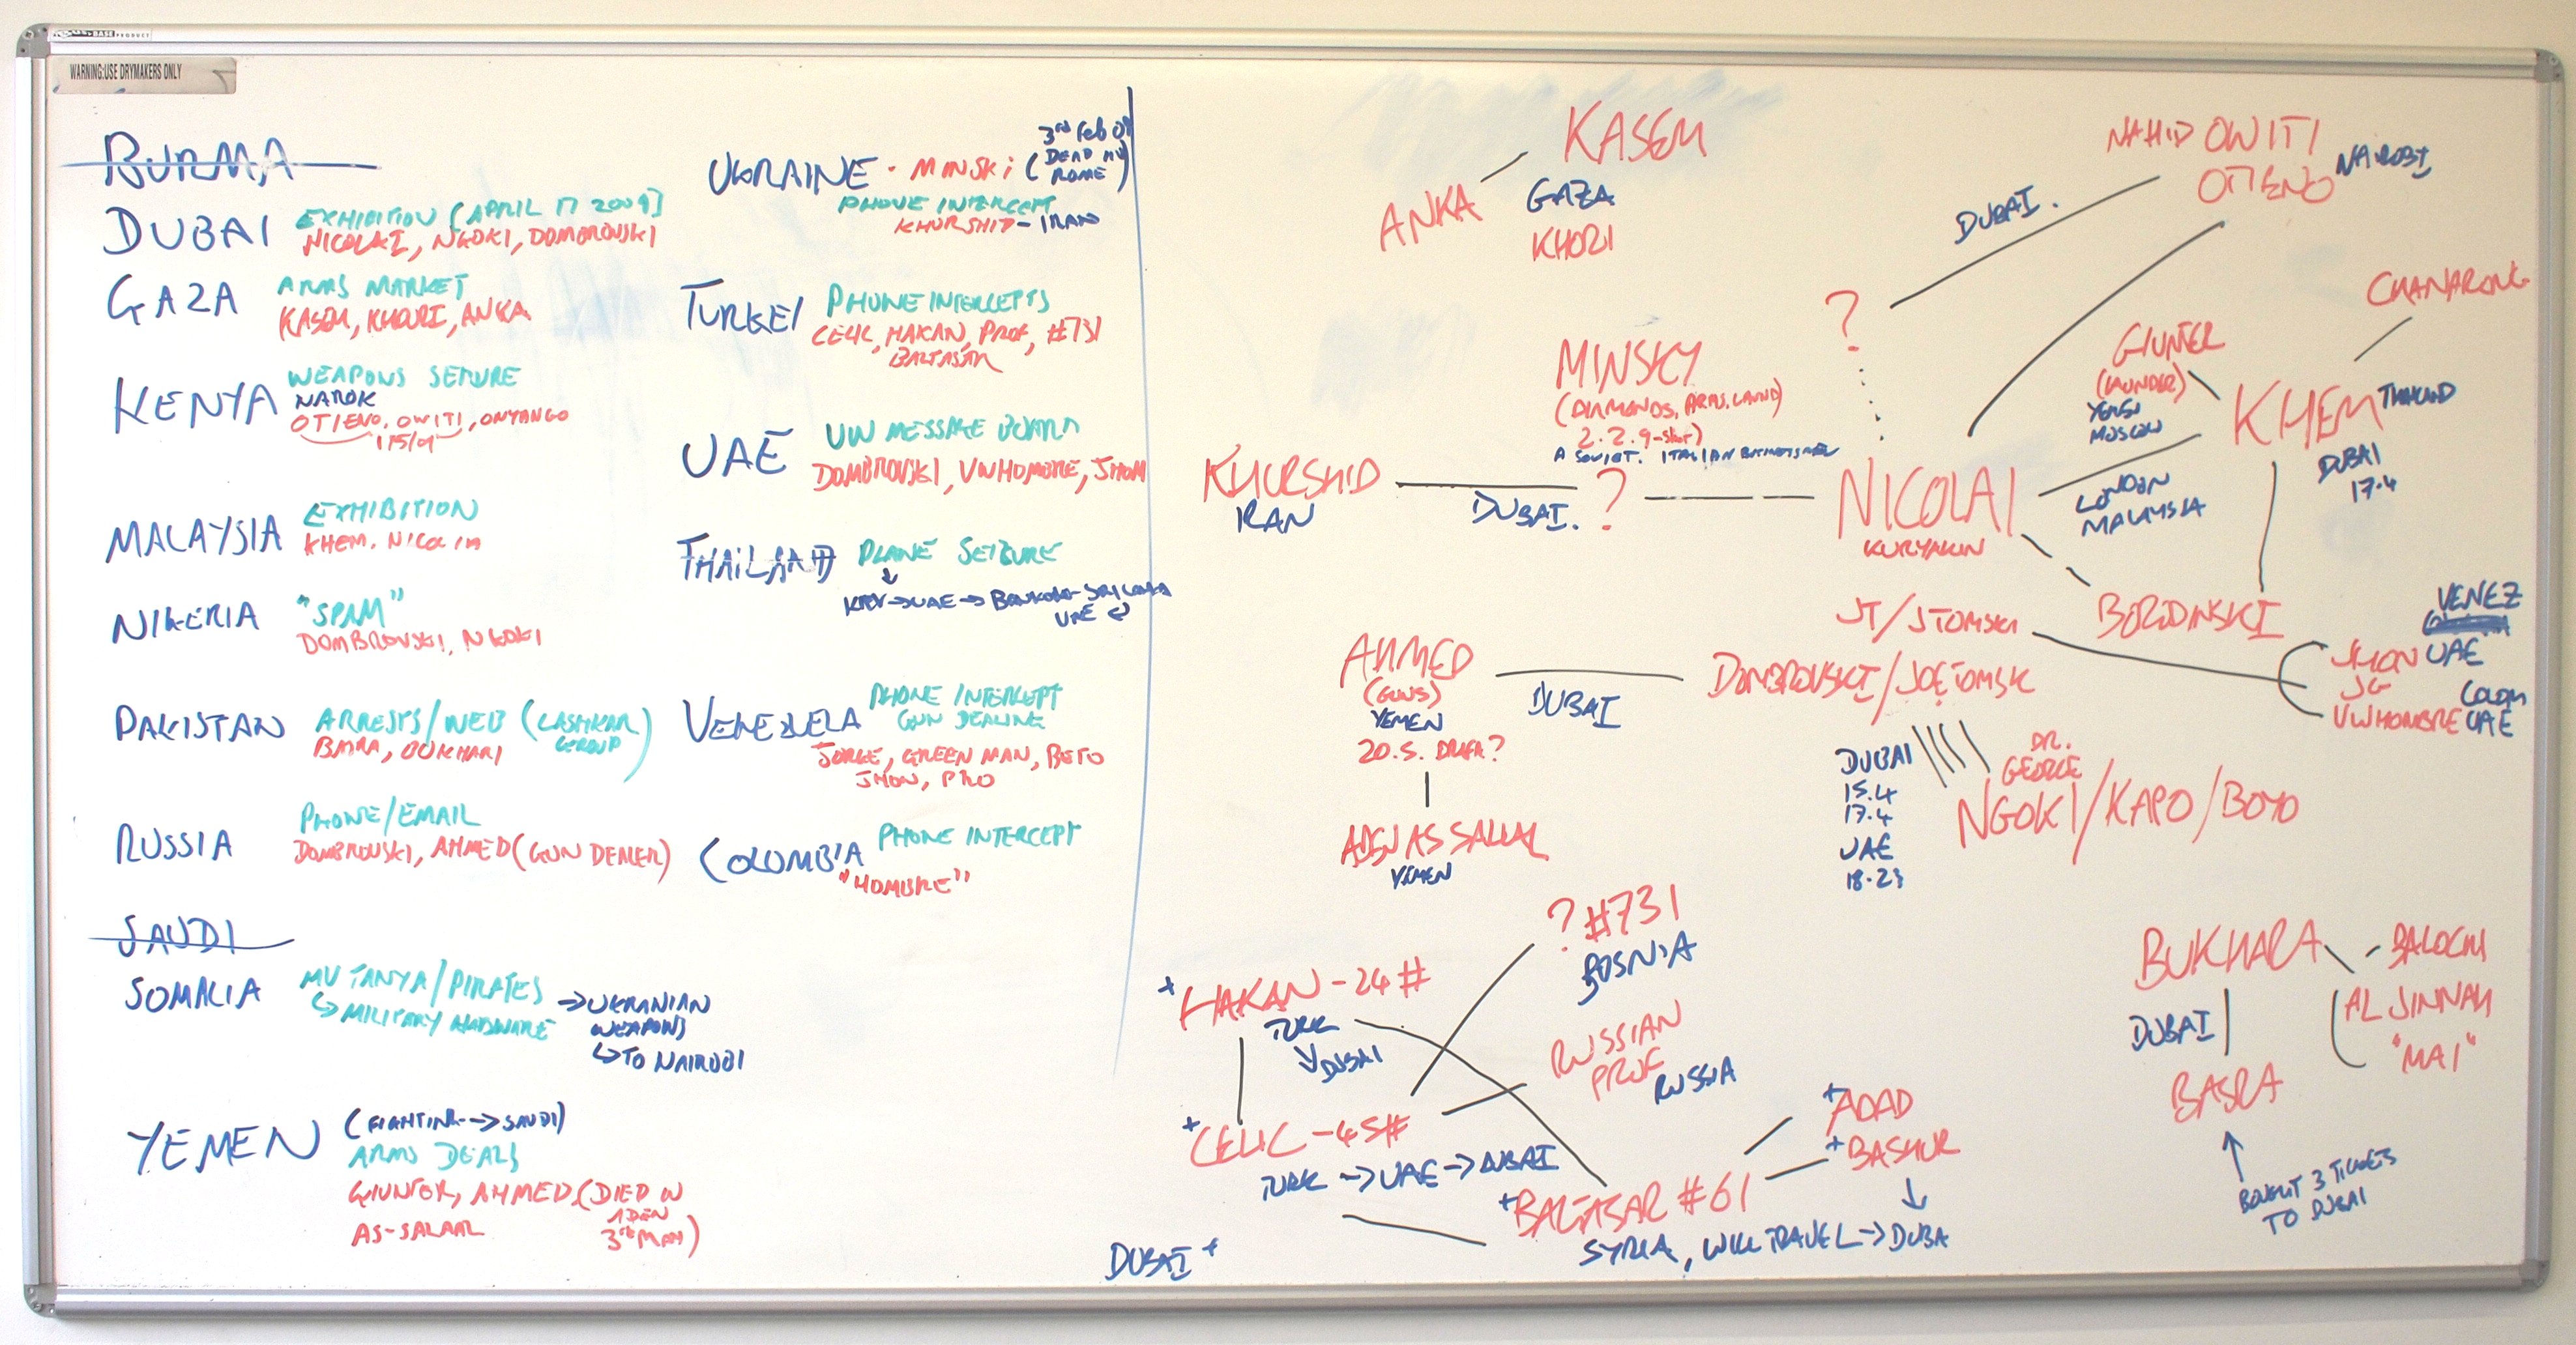 BASE PRODUCT
WARNING:USE DRYMAKERS ONLY
BURMA
DUBAI EXHIBITION (APRIL 17 2009)
NICOLAI, NGOKI, DOMBROVSKI
GAZA ARMS MARKET
KASEM, KHOURI, ANKA
KENYA WEAPONS SEIZURE
NAROK
OTIENO, OWITI, ONYANGO
MALAYSIA EXHIBITION
KHEM, NICOLAI
NIGERIA "SPAM"
DOMBROVSKI, NGOKI
PAKISTAN ARRESTS/WEB (LASHKAR GROUP)
BASRA, BUKHARI
RUSSIA PHONE/EMAIL
DOMBROVSKI, AHMED (GUN DEALER)
SAUDI
SOMALIA MV TANYA/PIRATES
↳ MILITARY HARDWARE
→ UKRANIAN
WEAPONS
↳ TO NAIROBI
YEMEN (FIGHTING --> SAUDI)
ARMS DEALS
GIUNTER, AHMED, (DIED IN
ADEN
AS-SALAAL 3RD MAN)
3RD Feb 09
UKRAINE - MINSKI (DEAD
ROME)
PHONE INTERCEPT
KHURSHID - IRAN
TURKEY PHONE INTERCEPTS
CELIC, HAKAN, PROF, #731
BALTASAR
UAE VW MESSAGE BOARD
DOMBROVSKI, VWHOMBRE, JHON
THAILAND PLANE SEIZURE
↓
KIEV → UAE → BANGKOK - SRI LANKA
UAE
VENEZUELA PHONE INTERCEPT
GUN DEALING
JORGE, GREEN MAN, BETO
JHON, PRO
COLUMBIA PHONE INTERCEPT
"HOMBRE"
KASEM
ANKA
GAZA
KHORI
NAHID OWITI
OTIENO NAIROBI
DUBAI.
?
CHANARONG
GIUNTER
(LAUNDER)
YEMEN
MOSCOW
KHEM THAILAND
DUBAI
17.4
MINSKY
(DIAMONDS, ARMS, LAUND)
2.2.9-shot)
A SOVIET. ITALIAN BUSINESSMEN
KHURSHID
IRAN
DUBAI.
?
NICOLAI
KURYAKIN
LONDON
MALAYSIA
BORDINSKI
JT/JTOMSKI
DOMBROVSKI/JOETOMSK
VENEZ
JHON UAE
JG
COLOM
VWHOMBRE UAE
AHMED
(GUNS)
YEMEN
20.5. DRAFA?
DUBAI
ADEN AS SALAAL
YEMEN
DUBAI
15.4
17.4
UAE
18-23
DR.
GEORGE
NGOKI/KAPO/BOYO
? #731
BOSNIA
+ HAKAN - 24 #
TURK
↓ DUBAI
RUSSIAN
PROF
RUSSIA
+ CELIC - 45#
TURK → UAE → DUBAI
+ ADAD
+ BASHUR
↓
+ BALTASAR #61
SYRIA, WILL TRAVEL → DUBA
DUBAI +
BUKHARA
BALOCHI
AL JINNAH
"MAI"
DUBAI
BASRA
BOUGHT 3 TICKETS
TO DUBAI